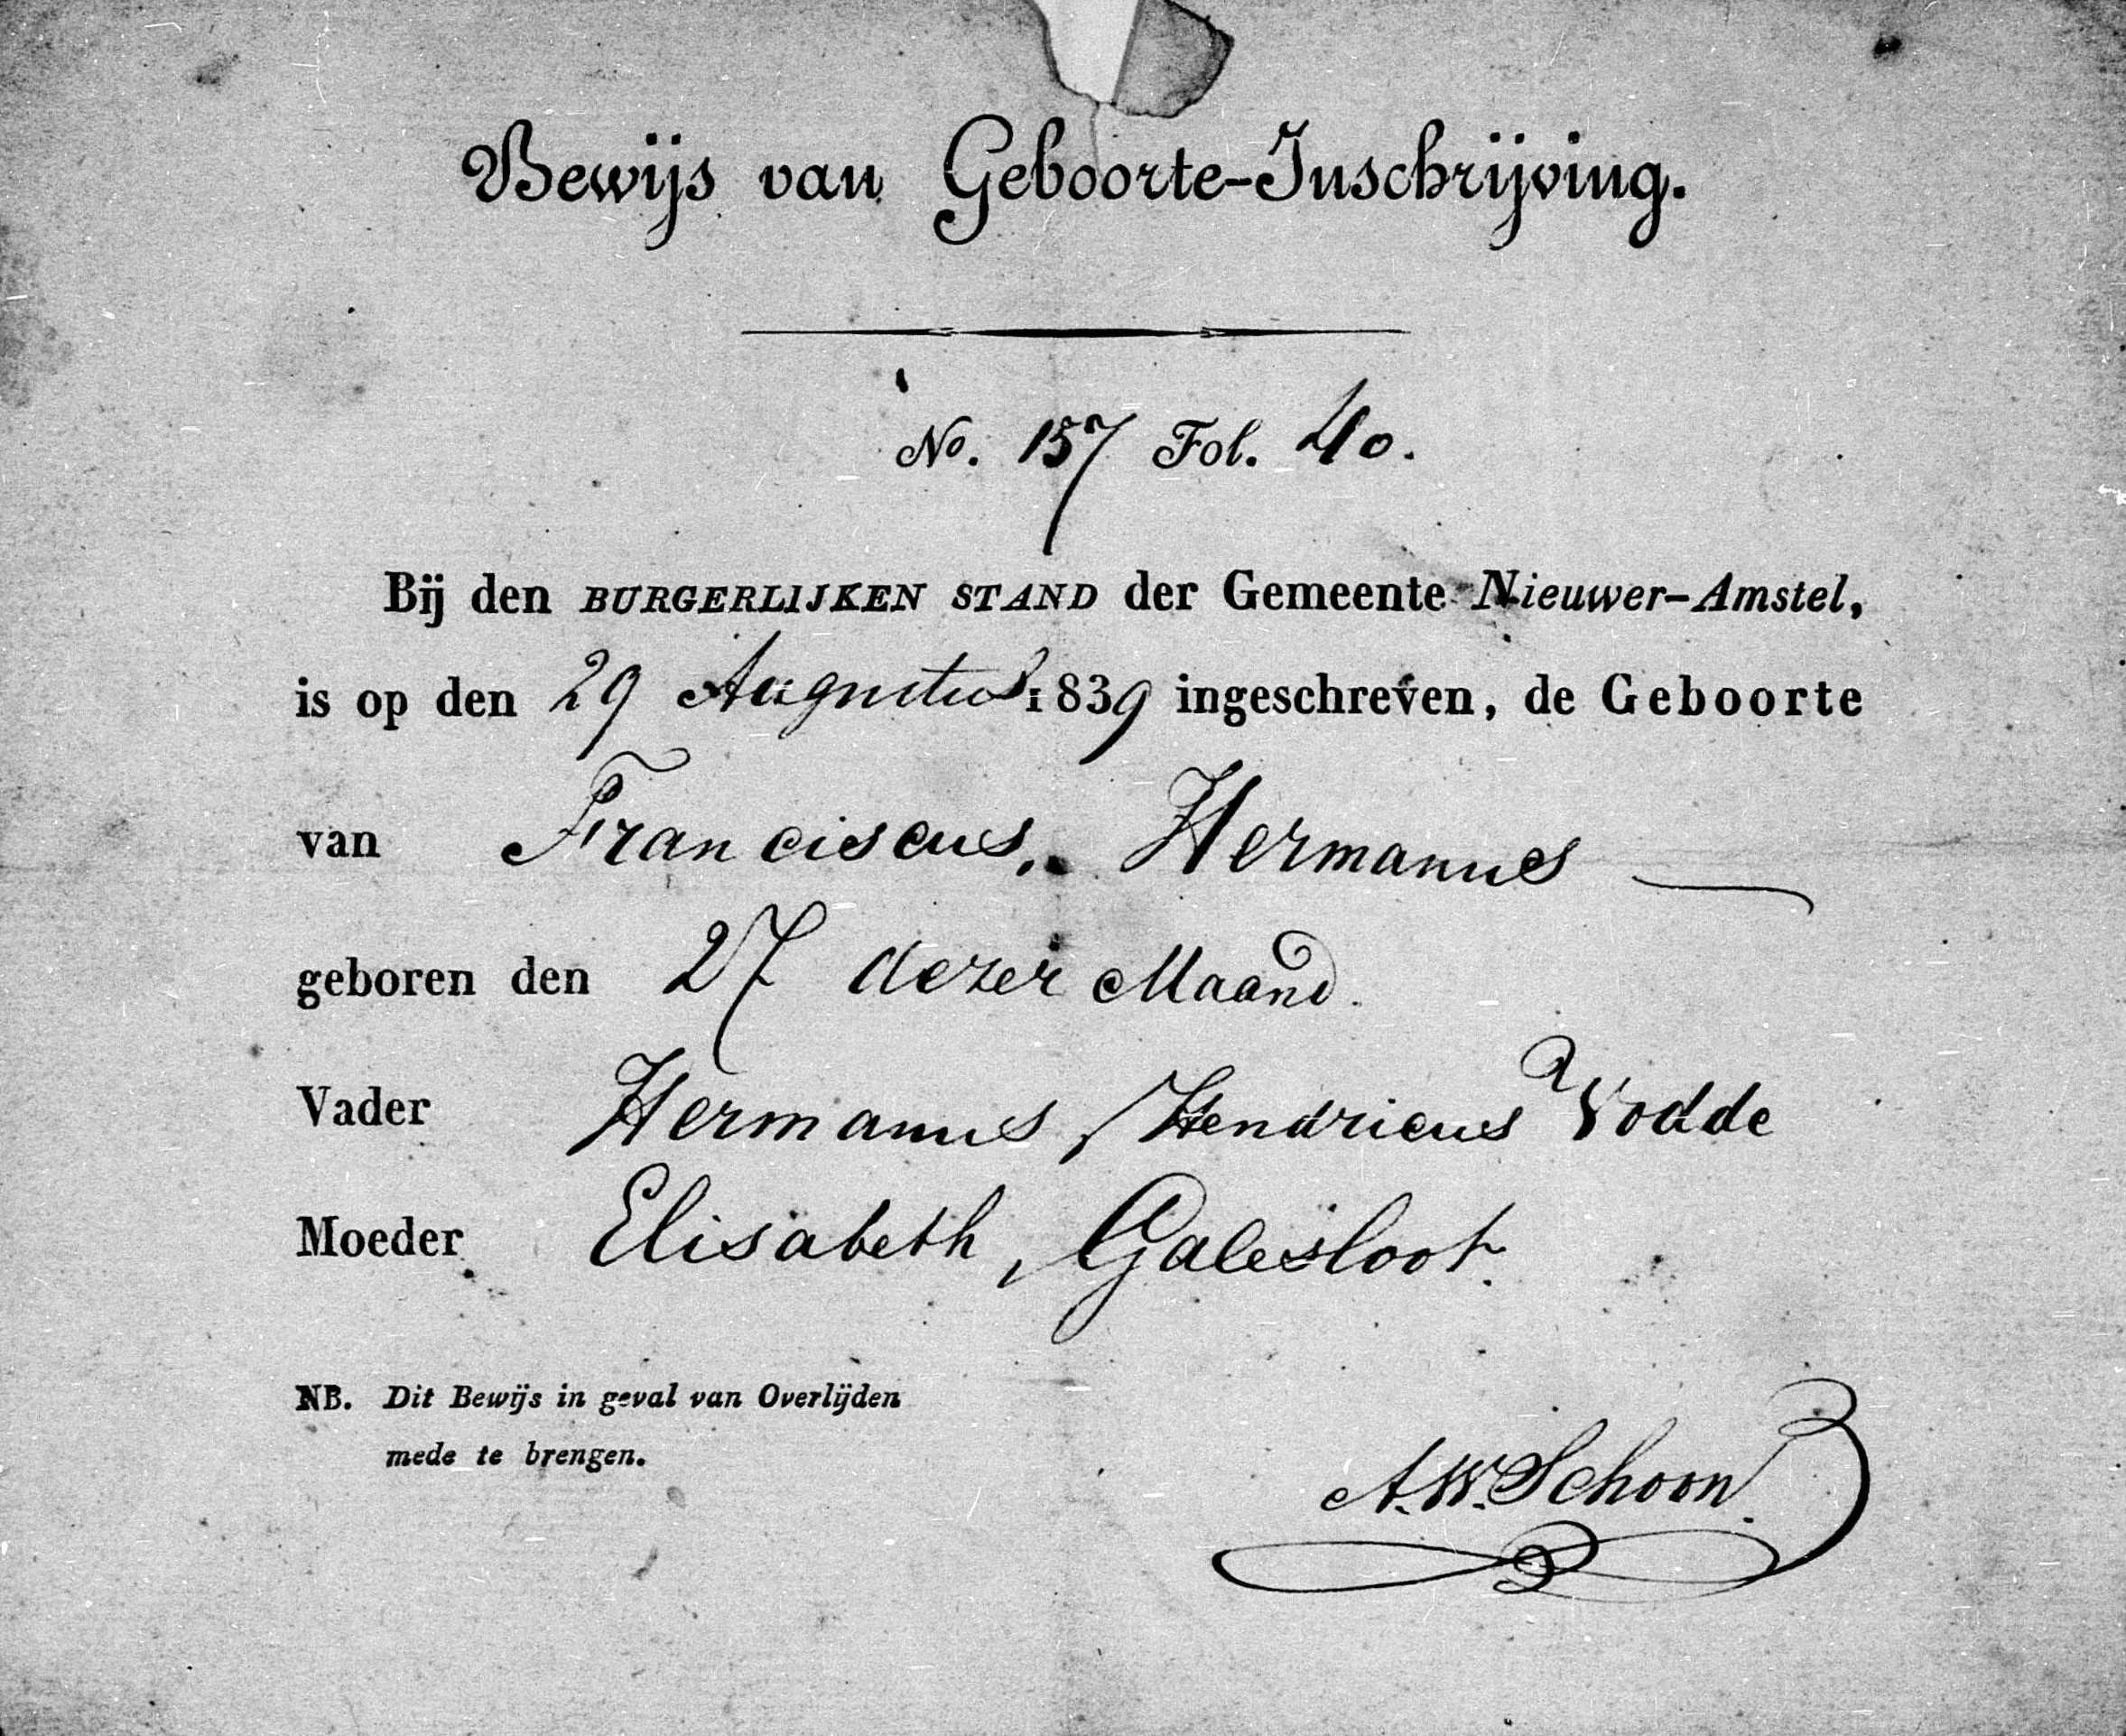 Bewijs van Geboorte-Inschrijving.
No. 157 Fol. 40.
Bij den BURGERLIJKEN STAND der Gemeente Nieuwer-Amstel,
is op den 29 Augustus 1839 ingeschreven, de Geboorte
van Franciscus, Hermanus
geboren den 27 dezer Maand.
Vader Hermanus, Hendricus Vodde
Moeder Elisabeth, Galesloot.
NB. Dit Bewijs in geval van Overlijden
mede te brengen.
A.W. Schoon.